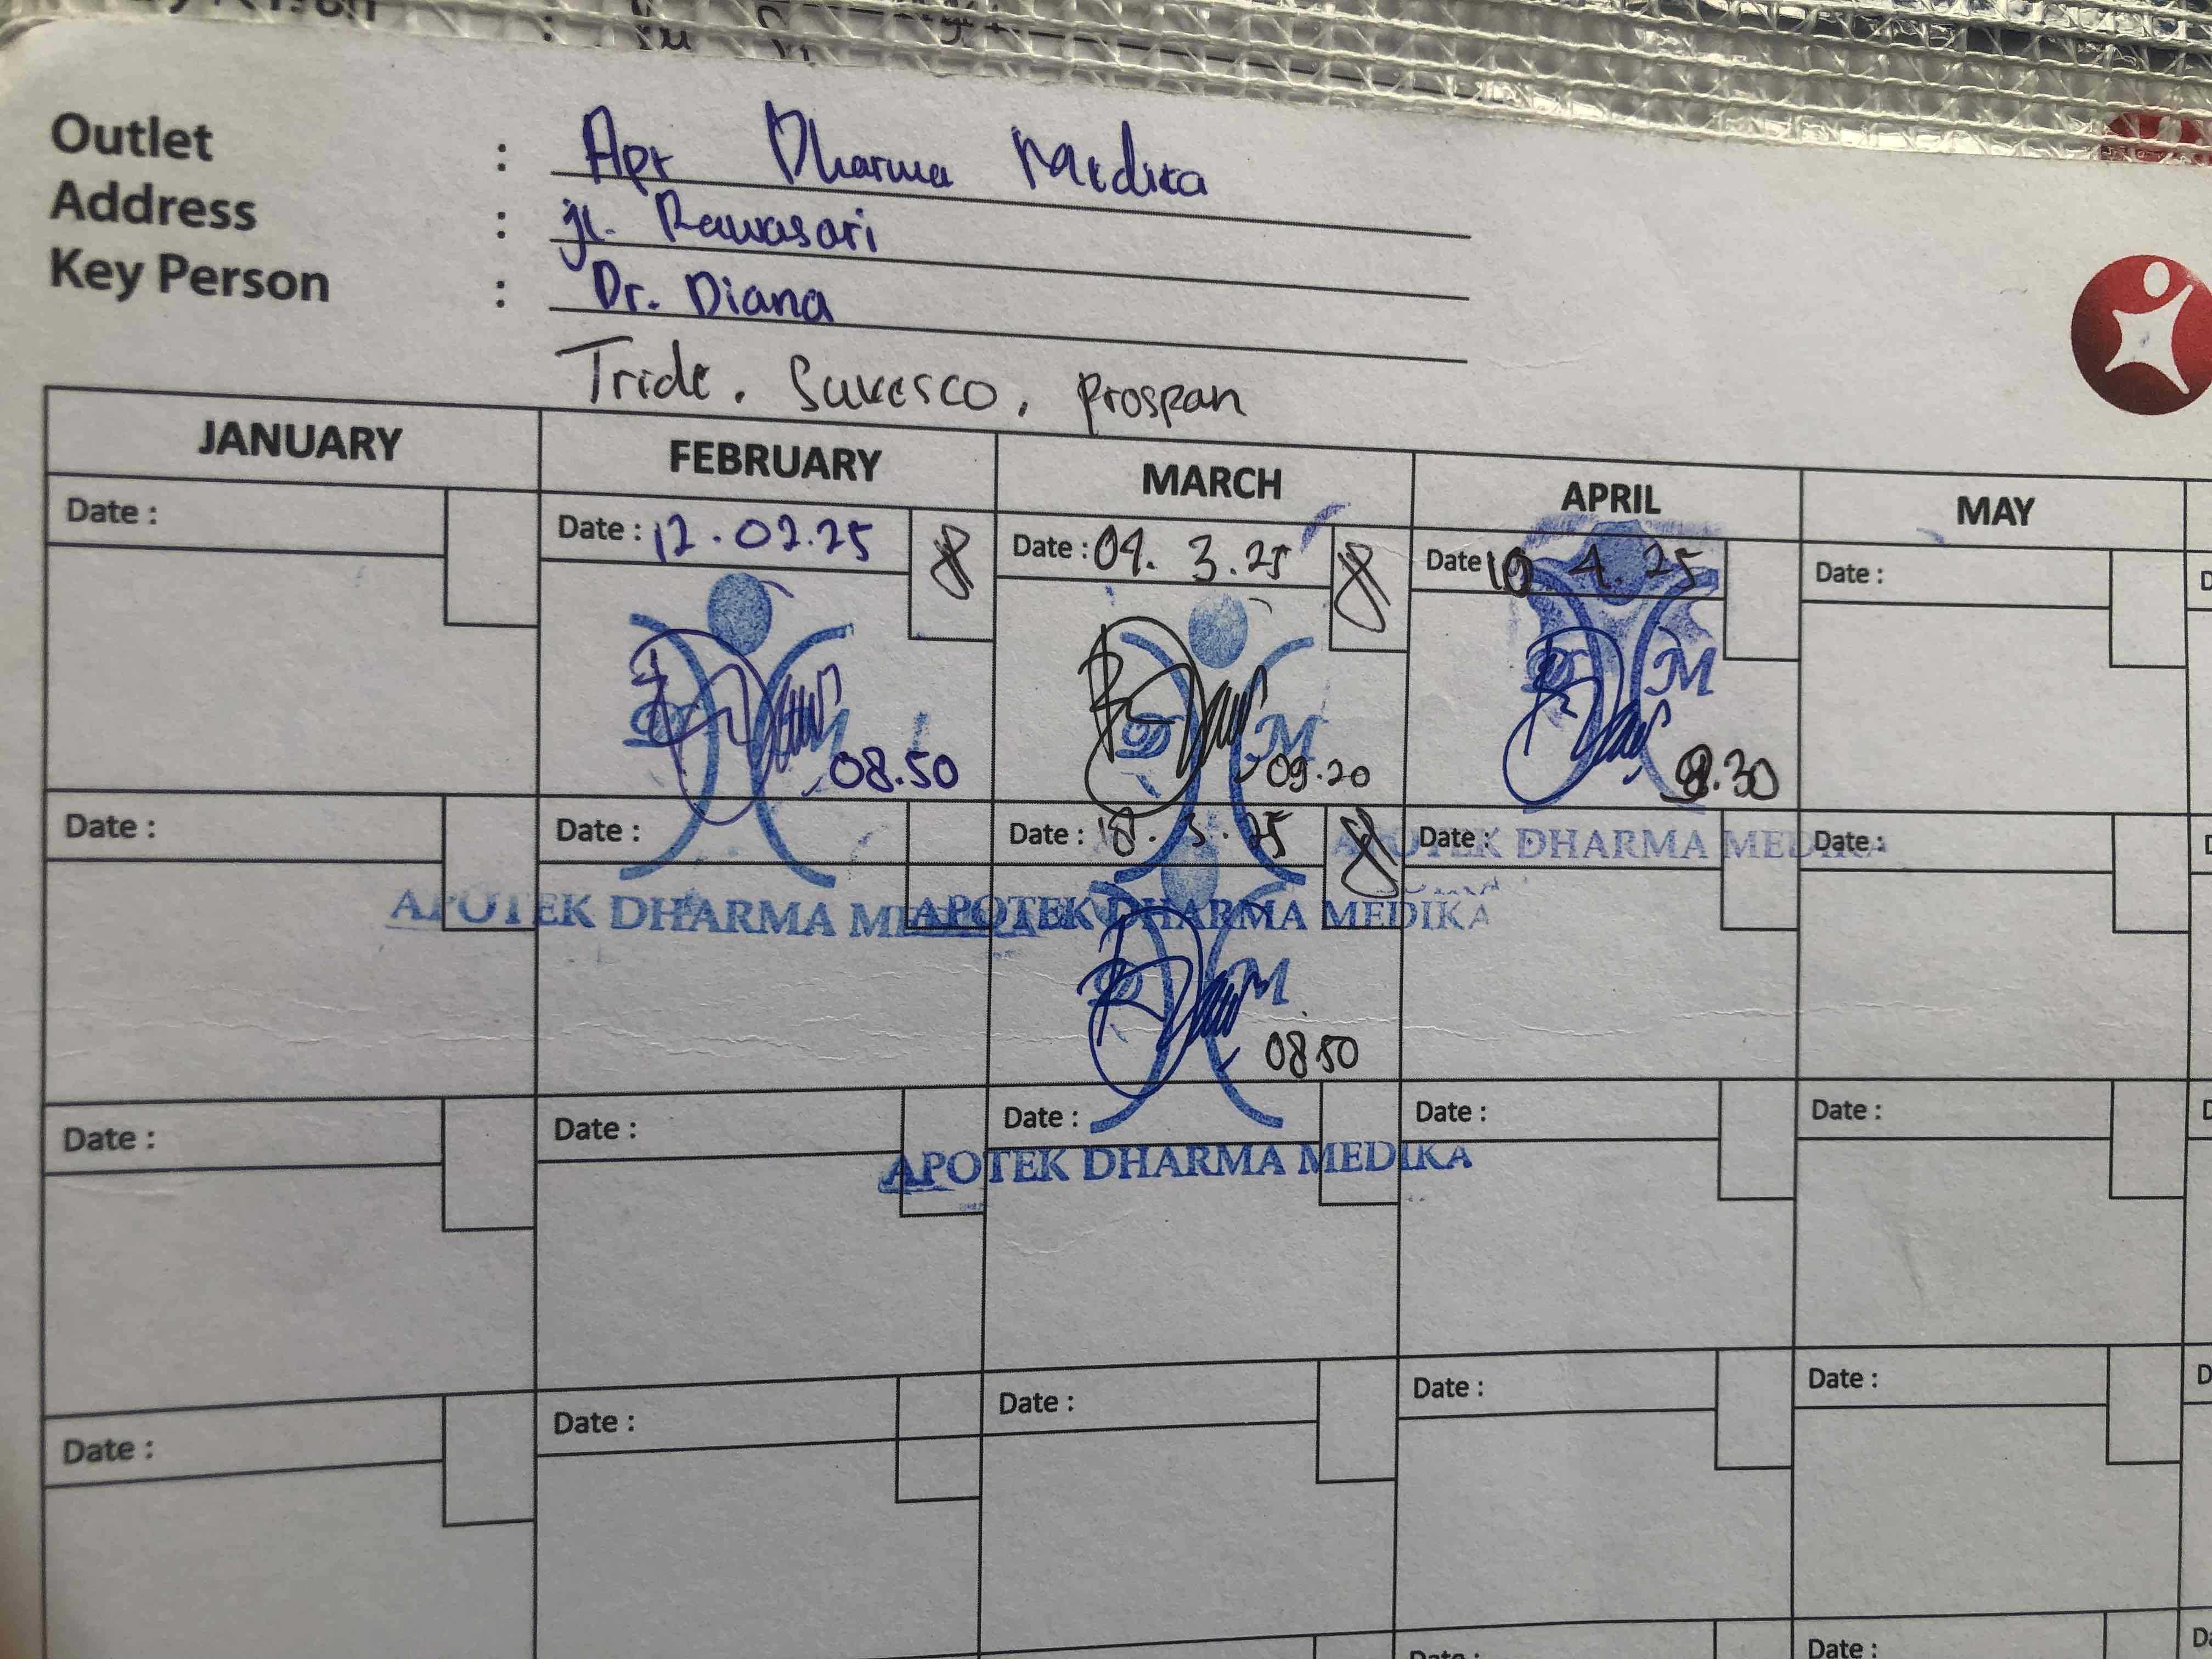 Outlet : Apt Dharma Medika
Address : jl. Rawasari
Key Person : Dr. Diana
Tride. Suvesco, Prospan
JANUARY FEBRUARY MARCH APRIL MAY
Date : Date : 12.02.25 8 Date : 04. 3.25 8 Date 10 4.25 Date :
D M
D M
D M
08.50 09.20 8.30
Date : Date : Date : 18.3.25 8 Date : Date :
APOTEK DHARMA MEDIKA
APOTEK DHARMA MEDIKA
APOTEK DHARMA MEDIKA
D M
08.50
Date : Date : Date : Date : Date :
APOTEK DHARMA MEDIKA
Date : Date : Date : Date : Date :
Date : Date :